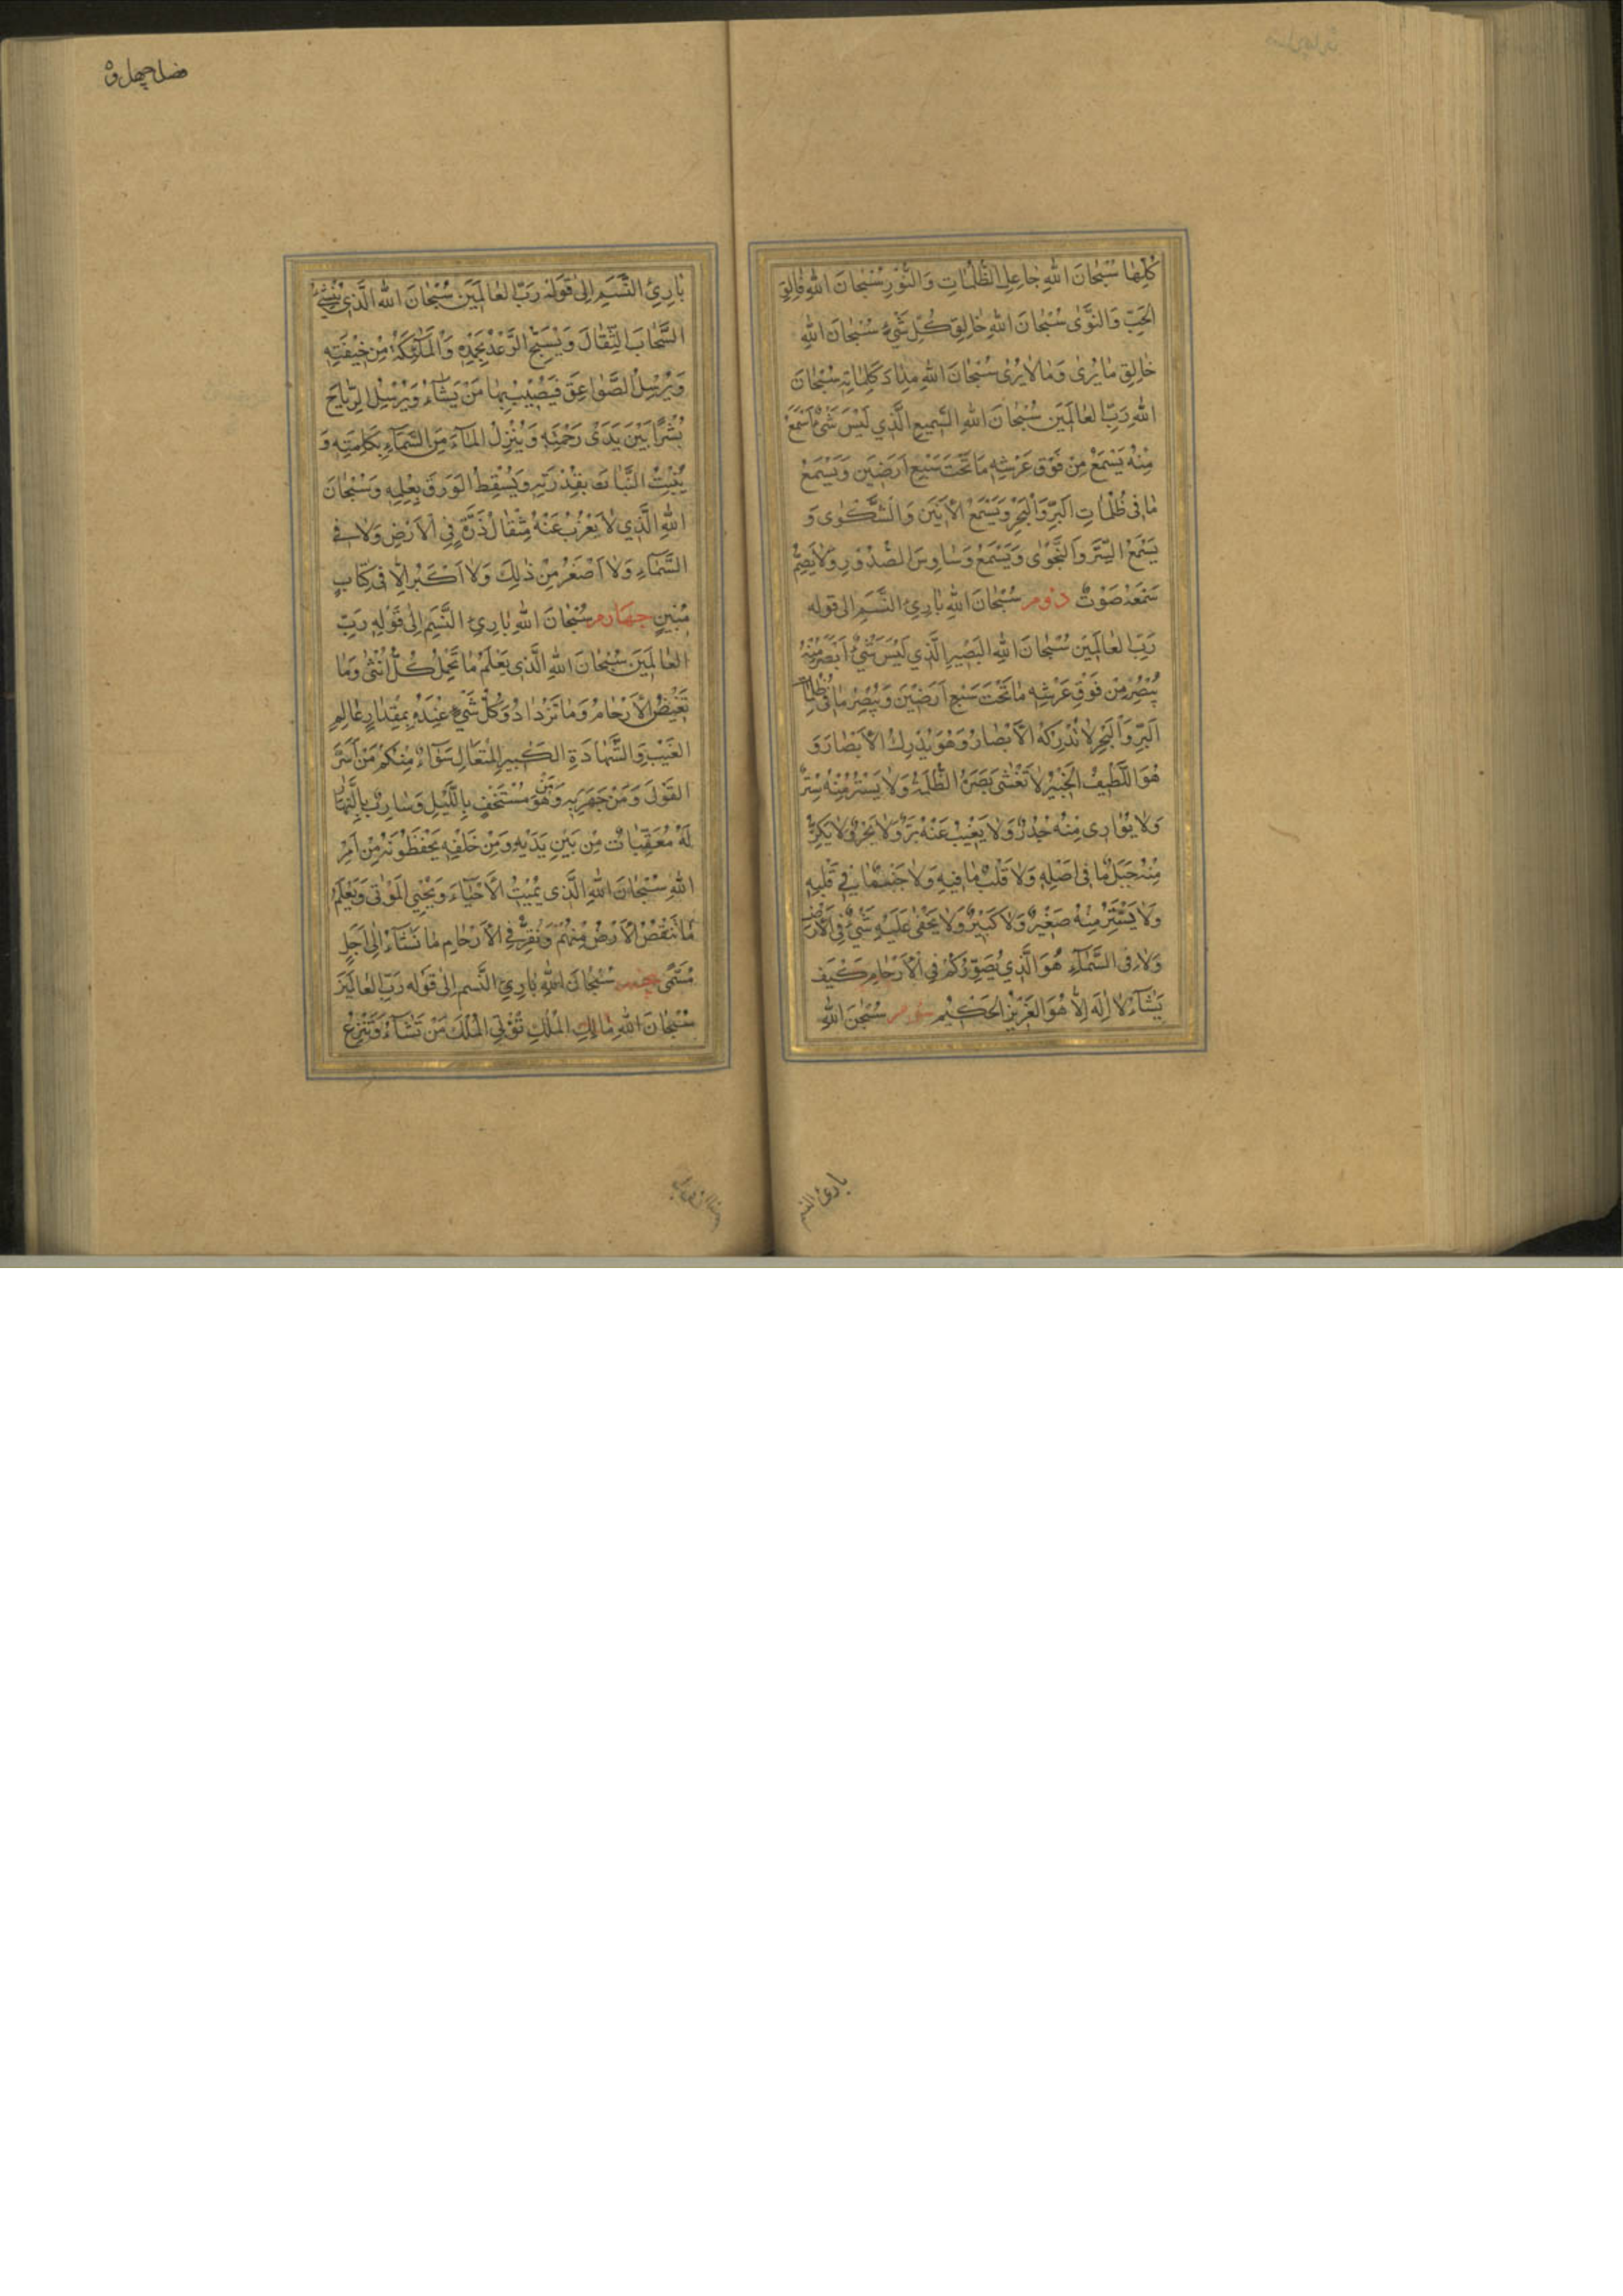 كُلِّهَا سُبْحَانَ اللهِ جَاعِلِ الظُّلُمَاتِ وَالنُّورِ سُبْحَانَ اللهِ فَالِقِ
الحَبِّ وَالنَّوَى سُبْحَانَ اللهِ خَالِقِ كُلِّ شَيْءٍ سُبْحَانَ اللهِ
خَالِقِ مَا يُرَى وَمَا لَا يُرَى سُبْحَانَ اللهِ مِدَادَ كَلِمَاتِهِ سُبْحَانَ
اللهِ رَبِّ العَالَمِينَ سُبْحَانَ اللهِ السَّمِيعِ الَّذِي لَيْسَ شَيْءٌ اَسْمَعَ
مِنْهُ يَسْمَعُ مِنْ فَوْقِ عَرْشِهِ مَا تَحْتَ سَبْعِ اَرَضِينَ وَيَسْمَعُ
مَا فِي ظُلُمَاتِ البَرِّ وَالْبَحْرِ وَيَسْمَعُ الْاَنِينَ وَالشَّكْوَى وَ
يَسْمَعُ السِّرَّ وَالنَّجْوَى وَيَسْمَعُ وَسَاوِسَ الصُّدُورِ وَلَا يُصِمُّ
سَمْعَهُ صَوْتٌ دوم سُبْحَانَ اللهِ بَارِئِ النَّسَمِ اِلى قوله
رَبِّ العَالَمِينَ سُبْحَانَ اللهِ البَصِيرِ الَّذِي لَيْسَ شَيْءٌ اَبْصَرَ مِنْهُ
يُبْصِرُ مِنْ فَوْقِ عَرْشِهِ مَا تَحْتَ سَبْعِ اَرَضِينَ وَيُبْصِرُ مَا فِي ظُلُمَاتِ
البَرِّ وَالْبَحْرِ لَا تُدْرِكُهُ الْاَبْصَارُ وَهُوَ يُدْرِكُ الْاَبْصَارَ وَ
هُوَ اللَّطِيفُ الخَبِيرُ لَا تَغْشَى بَصَرَهُ الظُّلْمَةُ وَلَا يَسْتُرُ مِنْهُ سِتْرٌ
وَلَا يُوَارِى مِنْهُ جُدُرٌ وَلَا يَغِيبُ عَنْهُ بَرٌّ وَلَا بَحْرٌ وَلَا يَكِنُّ
مِنْهُ جَبَلٌ مَا فِي اَصْلِهِ وَلَا قَلْبٌ مَا فِيهِ وَلَا جَنْبٌ مَا فِي قَلْبِهِ
وَلَا يَسْتَتِرُ مِنْهُ صَغِيرٌ وَلَا كَبِيرٌ وَلَا يَخْفَى عَلَيْهِ شَيْءٌ فِي الْاَرْضِ
وَلَا فِي السَّمَآءِ هُوَ الَّذِي يُصَوِّرُكُمْ فِي الْاَرْحَامِ كَيْفَ
يَشَآءُ لَا اِلهَ اِلَّا هُوَ العَزِيزُ الحَكِيمُ سوم سُبْحنَ اللهِ
بارئ النسم
فصل چهل و
بَارِئِ النَّسَمِ اِلى قَوْلِهِ رَبِّ العَالَمِينَ سُبْحَانَ اللهِ الَّذِي يُنْشِئُ
السَّحَابَ الثِّقَالَ وَيُسَبِّحُ الرَّعْدُ بِحَمْدِهِ وَالْمَلٰئِكَةُ مِنْ خِيفَتِهِ
وَيُرْسِلُ الصَّوَاعِقَ فَيُصِيبُ بِهَا مَنْ يَشَآءُ وَيُرْسِلُ الرِّيَاحَ
بُشْرًا بَيْنَ يَدَىْ رَحْمَتِهِ وَيُنْزِلُ المَآءَ مِنَ السَّمَآءِ بِكَلِمَتِهِ وَ
يُنْبِتُ النَّبَاتَ بِقُدْرَتِهِ وَيُسْقِطُ الوَرَقَ بِعِلْمِهِ وَسُبْحَانَ
اللهِ الَّذِي لَا يَعْزُبُ عَنْهُ مِثْقَالُ ذَرَّةٍ فِي الْاَرْضِ وَلَا فِي
السَّمَآءِ وَلَا اَصْغَرُ مِنْ ذٰلِكَ وَلَا اَكْبَرُ اِلَّا فِي كِتَابٍ
مُبِينٍ چهارم سُبْحَانَ اللهِ بَارِئِ النَّسَمِ اِلى قَوْلِهِ رَبِّ
العَالَمِينَ سُبْحَانَ اللهِ الَّذِي يَعْلَمُ مَا تَحْمِلُ كُلُّ اُنْثَى وَمَا
تَغِيضُ الْاَرْحَامُ وَمَا تَزْدَادُ وَكُلُّ شَيْءٍ عِنْدَهُ بِمِقْدَارٍ عَالِمِ
الغَيْبِ وَالشَّهَادَةِ الكَبِيرِ المُتَعَالِ سَوَآءٌ مِنْكُمْ مَنْ اَسَرَّ
القَوْلَ وَمَنْ جَهَرَ بِهِ وَمَنْ هُوَ مُسْتَخْفٍ بِاللَّيْلِ وَسَارِبٌ بِالنَّهَارِ
لَهُ مُعَقِّبَاتٌ مِنْ بَيْنِ يَدَيْهِ وَمِنْ خَلْفِهِ يَحْفَظُونَهُ مِنْ اَمْرِ
اللهِ سُبْحَانَ اللهِ الَّذِي يُمِيتُ الْاَحْيَاءَ وَيُحْيِي المَوْتَى وَيَعْلَمُ
مَا تَنْقُصُ الْاَرْضُ مِنْهُمْ وَيُقِرُّ فِي الْاَرْحَامِ مَا نَشَآءُ اِلَى اَجَلٍ
مُسَمًّى پنجم سُبْحَانَ اللهِ بَارِئِ النَّسَمِ اِلى قَوْلِهِ رَبِّ العَالَمِينَ
سُبْحَانَ اللهِ مَالِكِ الْمُلْكِ تُؤْتِي الْمُلْكَ مَنْ تَشَآءُ وَتَنْزِعُ